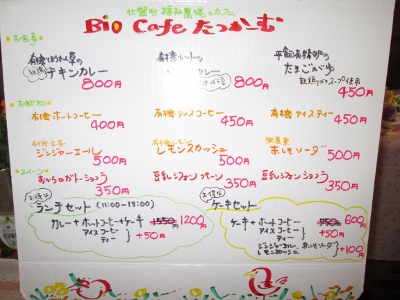 Bio Cafe たつかーむ
お食事
チキンカレー
800円
カレー
800円
平飼有精卵の
たまごかけ
スープ使用
450円
有機ホットコーヒー
400円
有機アイスコーヒー
450円
有機アイスティー
450円
ジンジャーエール
500円
有機レモン
レモンスカッシュ
500円
無農薬
赤しそソーダ
500円
スイーツ
おからのガトーショコラ
350円
豆乳シフォン プレーン
350円
豆乳シフォン
350円
お得な
ランチセット (11:00-15:00)
カレー+ホットコーヒー+ケーキ 1550円 1200円
アイスコーヒー
ティー
+50円
お得な
ケーキセット
ケーキ+ホットコーヒー 750円 600円
アイスコーヒー
ティー
+50円
ジンジャエール、赤しそソーダ
レモンスカッシュ
+100円